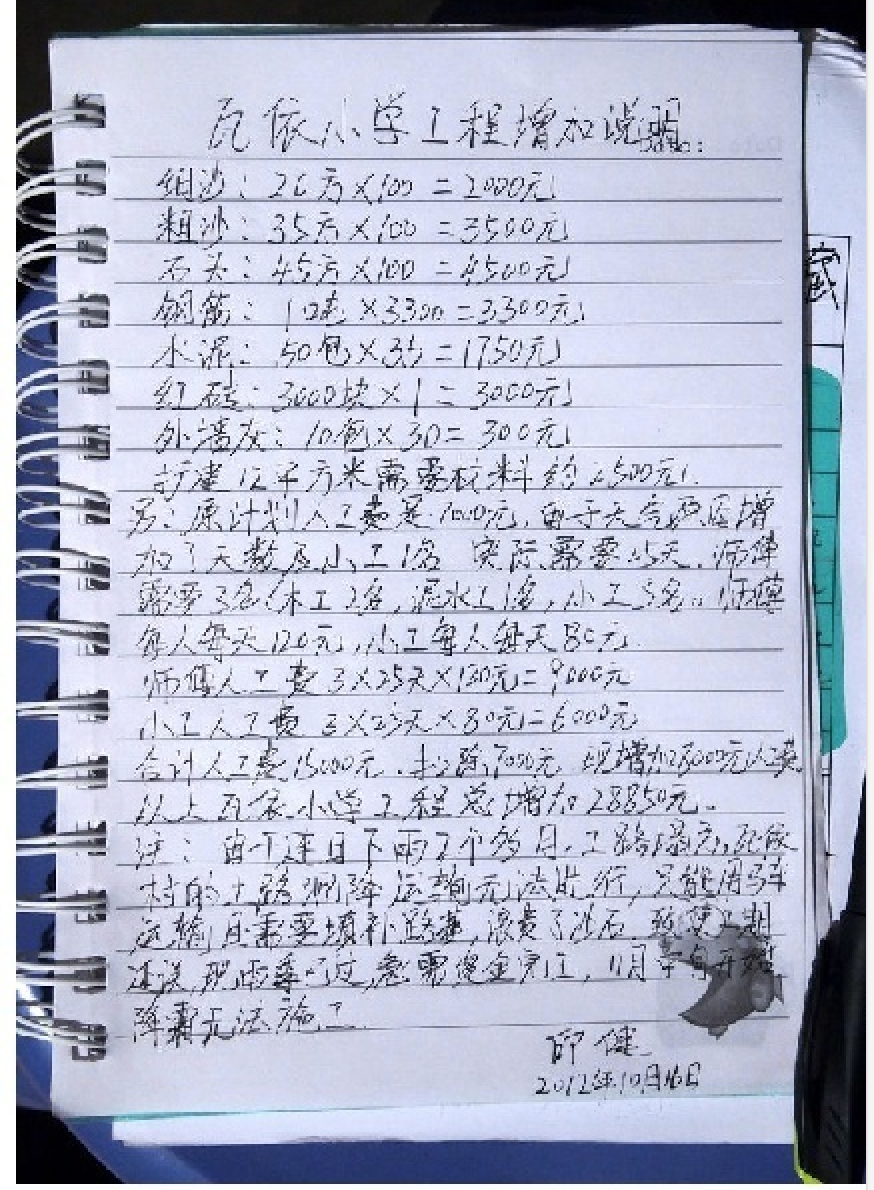 瓦依小学工程增加说明
细沙：20方×100=2000元
粗沙：35方×100=3500元
石头：45方×100=4500元
钢筋：1吨×3300=3300元
水泥：50包×35=1750元
红砖：3000块×1=3000元
外墙灰：10包×30=300元
新建12平方米需要材料约2500元
另：原计划人工费是7000元，由于天气原因增
加了天数及小工1名 实际需要25天，师傅
需要3名（木工2名，泥水工1名，小工3名。师傅
每人每天120元，小工每人每天80元
师傅人工费 3×25天×120元=9000元
小工人工费 3×25天×80元=6000元
合计人工费15000元，扣除7000元 现增加8000元人工费
以上瓦依小学工程总增加28850元。
注：由于连日下雨2个多月，工路塌方，瓦依
村的土路 运输无法 ，只能用马车
运输且需要填补路基，浪费了沙石，致使工期
，现雨季已过，急需 ，11月 开始
降霜无法施工
邱健
2012年10月16日